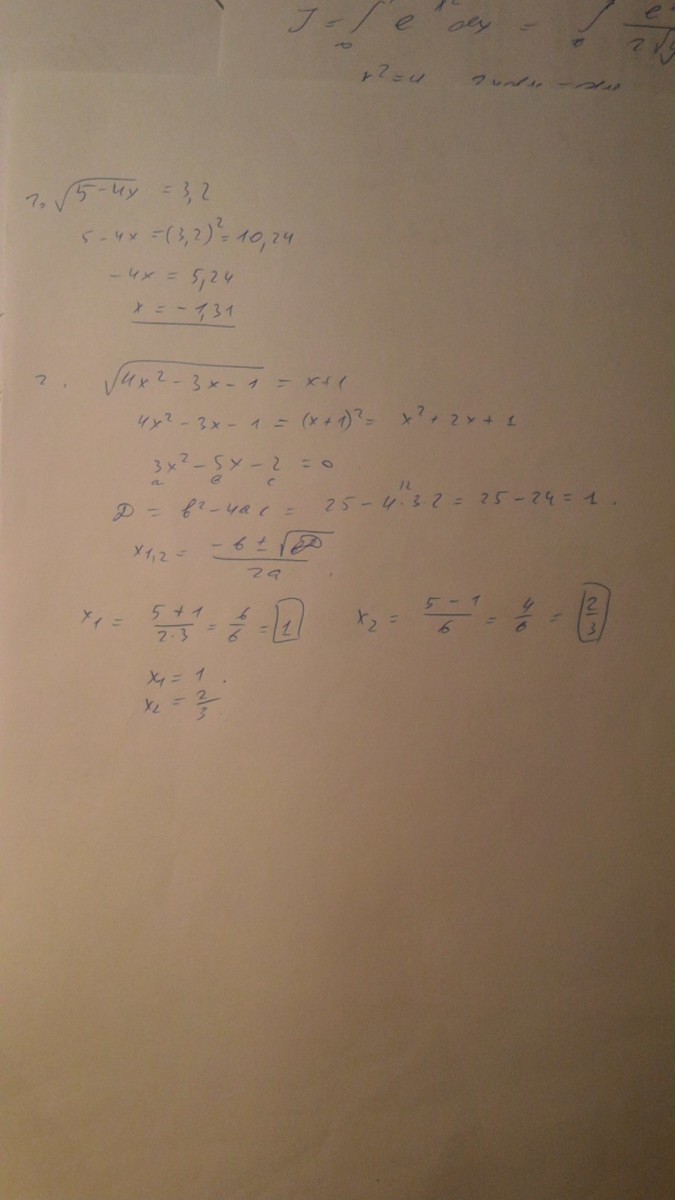 J = ∫₀ e^x² dx = ∫₀ e / 2√y
x² = 4
1. √(5-4x) = 3,2
5-4x = (3,2)² = 10,24
-4x = 5,24
x = -1,31
2. √(4x² - 3x - 1) = x+1
4x² - 3x - 1 = (x+1)² = x² + 2x + 1
3x² - 5x - 2 = 0
a в c
12
D = в² - 4ac = 25 - 4·3 2 = 25 - 24 = 1.
x1,2 = (-в ± √D) / 2a
x1 = (5+1) / (2·3) = 6/6 = 1 x2 = (5-1) / 6 = 4/6 = 2/3
x1 = 1.
x2 = 2/3